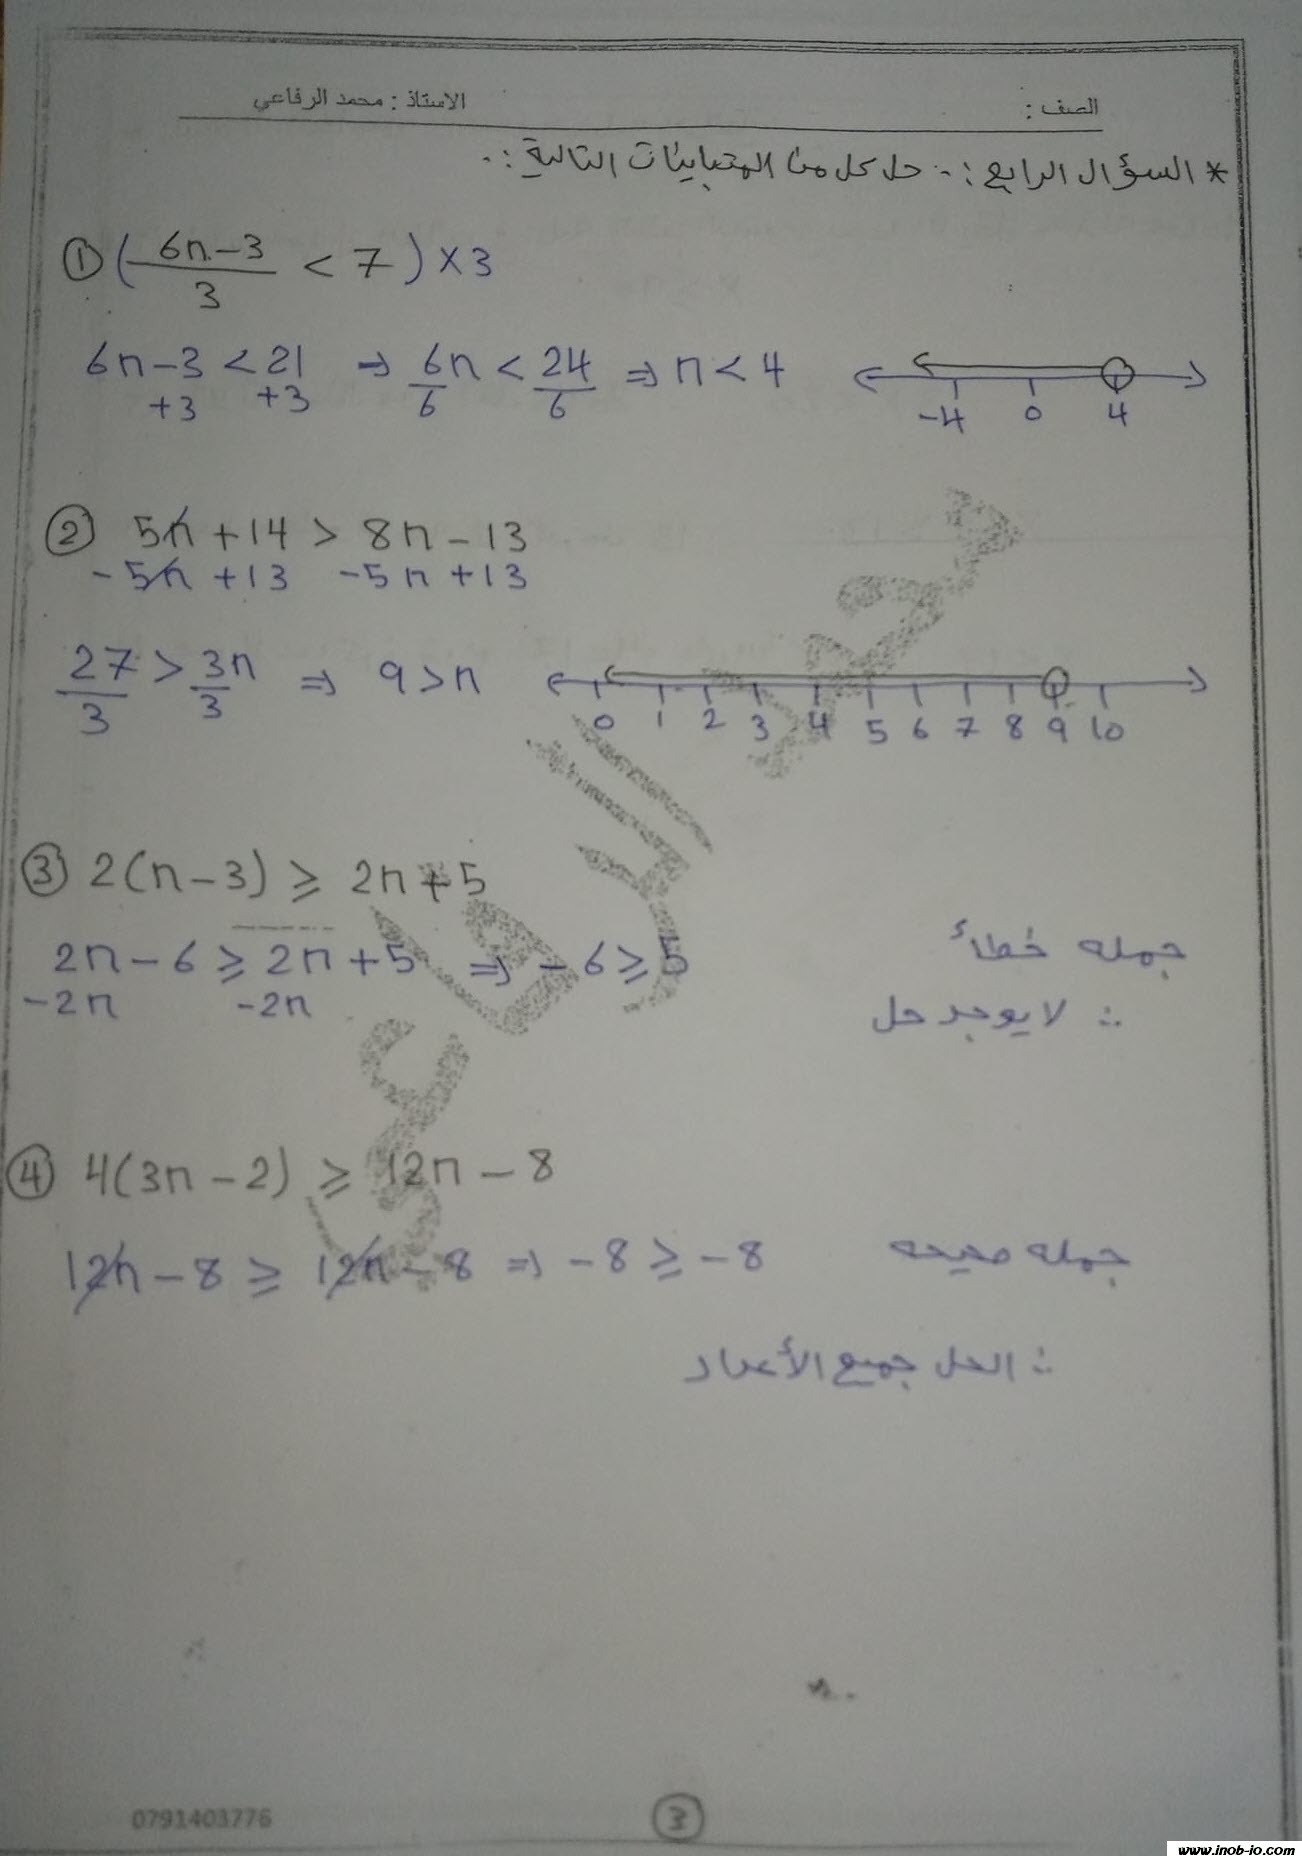 الصف : الاستاذ : محمد الرفاعي
* السؤال الرابع :- حل كل من المتباينات التالية :-
① ( 6n-3 / 3 < 7 ) × 3
6n-3 < 21 ⇒ 6n/6 < 24/6 ⇒ n < 4
+3 +3
-4 0 4
② 5n + 14 > 8n - 13
-5n + 13 -5n + 13
27/3 > 3n/3 ⇒ 9 > n
0 1 2 3 4 5 6 7 8 9 10
③ 2(n-3) ≥ 2n+5
2n-6 ≥ 2n+5 ⇒ -6 ≥ 5 جمله خطأ
-2n -2n
∴ لا يوجد حل
④ 4(3n-2) ≥ 12n-8
12n-8 ≥ 12n-8 ⇒ -8 ≥ -8 جمله صحيحه
∴ الحل جميع الأعداد
محمد الرفاعي
0791403776
3
www.jnob-jo.com